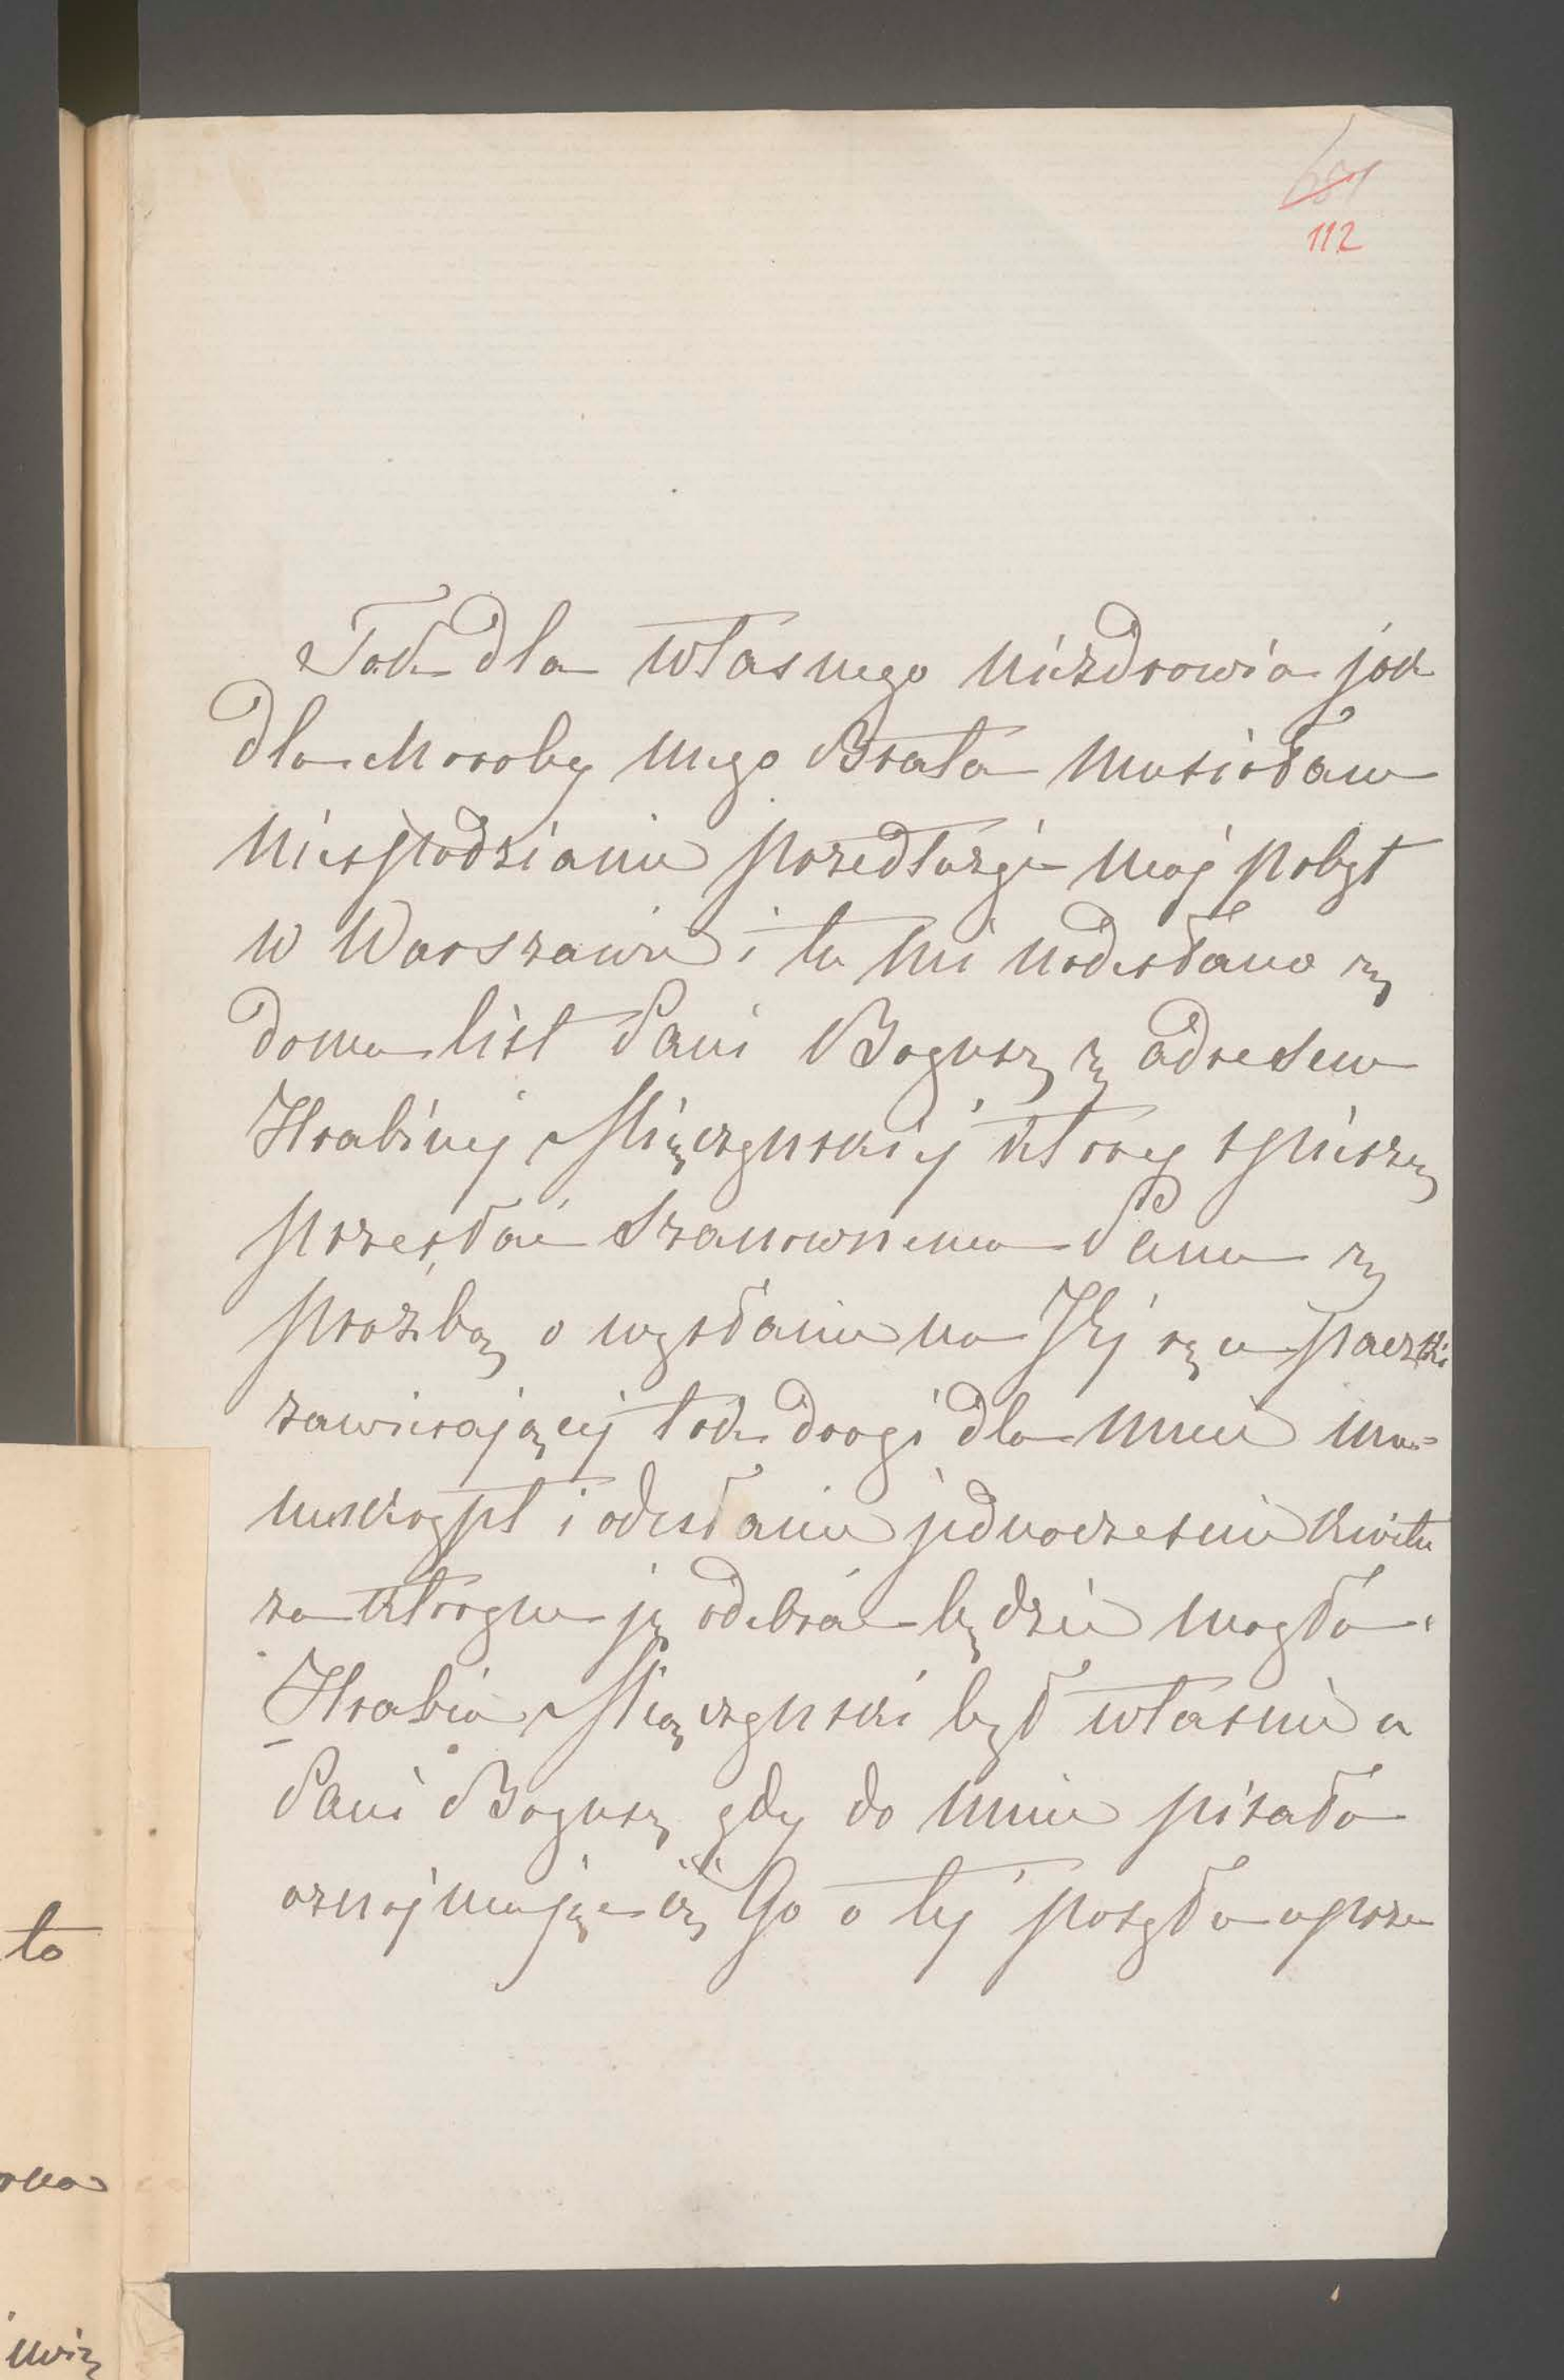 112
Tak dla własnego niezdrowia jak
dla choroby mego Brata musiałam
niespodzianie przedłużyć mój pobyt
w Warszawie i tu mi nadesłano z
domu list Pani Bogusz z adresem
Hrabinej Miączyńskiej który spieszę
przesłać Szanownemu Panu z
prożbą o wysłanie na Jéj ręce paczki
zawierającej tak drogi dla mnie ma=
nuskrypt i odesłanie jednocześnie kwitu
za którym ją odebrać będzie mogła.
Hrabia Miączyński był właśnie u
Pani Bogusz gdy do mnie pisała
oznajmując iż Go o tej posyłce uprze
to